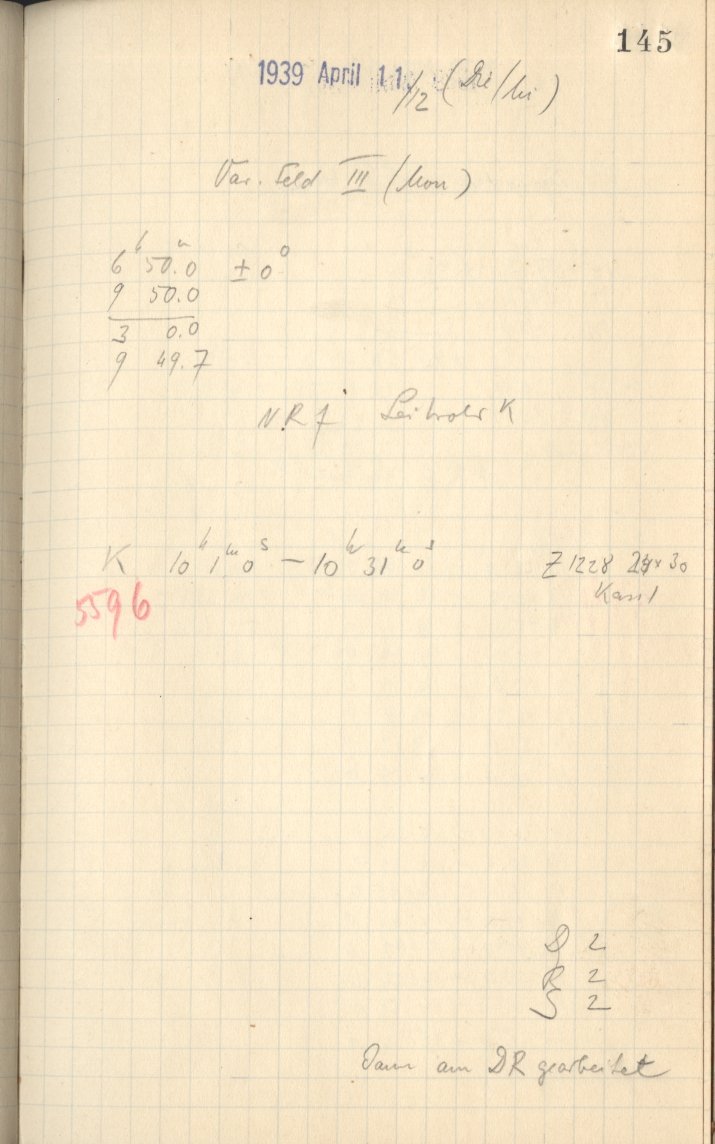 145
1939 April 11./12 (Die/Mi)
Var. Feld III (Mon)
6h 50.0m ± 0°
9 50.0
3 0.0
9 49.7
NR 7 Leitrohr K
K 10h 1m 0s – 10h 31m 0s Z 1228 24x30
5596
D 2
R 2
S 2
Dann am DR gearbeitet